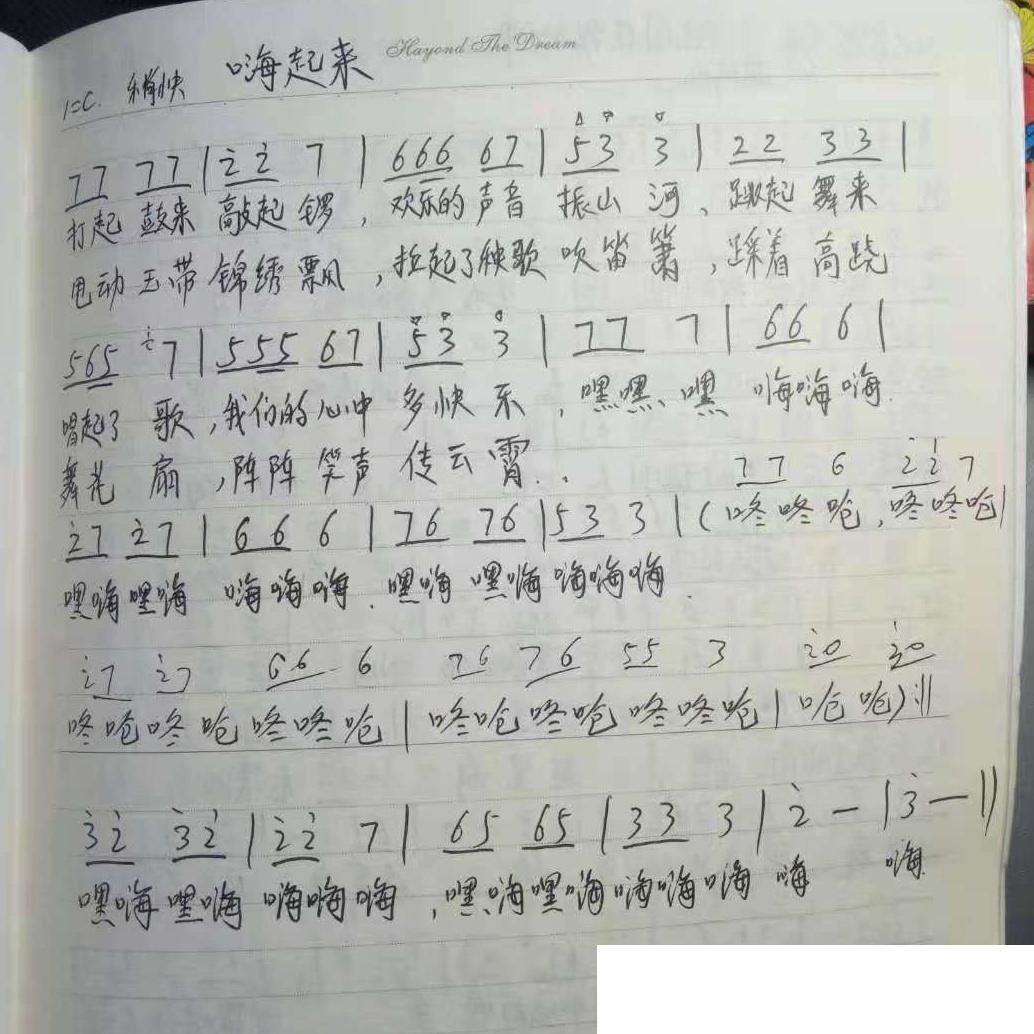 Hayond The Dream
1=C. 稍快 嗨起来
77 77 | 2̇2̇ 7 | 666 67 | 53 3 | 22 33 |
打起 鼓来 敲起 锣，欢乐的 声音 振山 河、跳起 舞来
甩动 玉带 锦绣 飘，扭起了秧歌 吹笛箫，踩着 高跷
565 2̇7 | 555 67 | 53 3 | 77 7 | 66 6 |
唱起了 歌，我们的心中 多快 乐，嘿嘿、嘿 嗨嗨嗨.
舞花 扇，阵阵 笑声 传云霄..
77 6 2̇2̇ 7
2̇7 2̇7 | 66 6 | 76 76 | 53 3 | (咚咚呛,咚咚呛|
嘿嗨嘿嗨 嗨嗨嗨.嘿嗨 嘿嗨 嗨嗨嗨.
2̇7 2̇7 66 6 76 76 55 3 2̇0 3̇0
咚呛咚呛咚咚呛|咚呛咚呛咚咚呛|呛呛):||
3̇2̇ 3̇2̇ | 2̇2̇ 7 | 65 65 | 33 3 | 2̇ — | 3̇ — ||
嘿嗨嘿嗨 嗨嗨嗨，嘿嗨嘿嗨嗨嗨嗨 嗨 嗨.